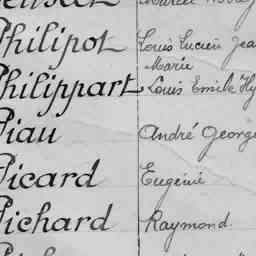 Philipot Louis Lucien Jea
Marie
Philippart Louis Emile Hy
Piau André George
Picard Eugénie
Pichard Raymond